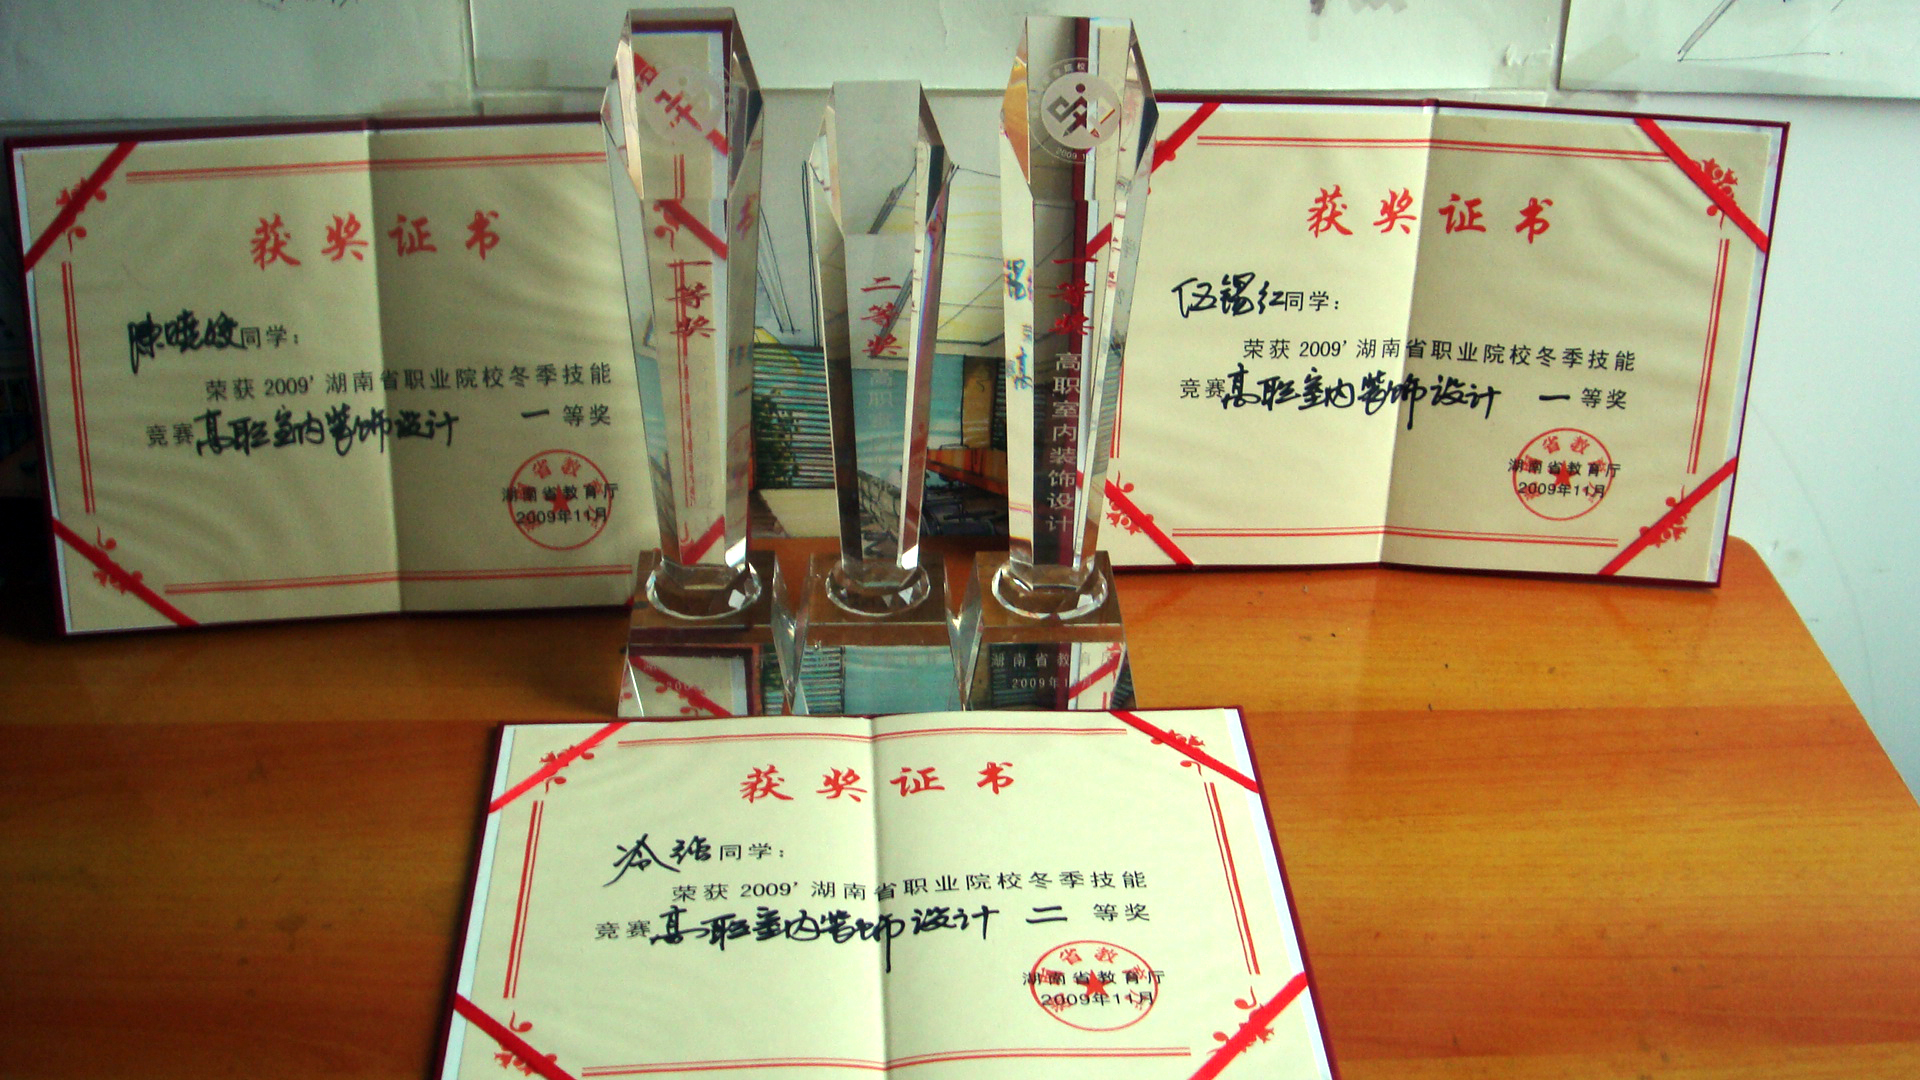 获奖证书
陈晓姣同学：
荣获 2009' 湖南省职业院校冬季技能
竞赛高职室内装饰设计 一 等奖
湖南省教育厅
2009年11月
一等奖
二等奖
高职
2009
一等奖
高职室内装饰设计
湖南省教育厅
2009年11月
获奖证书
伍锡红同学：
荣获 2009' 湖南省职业院校冬季技能
竞赛高职室内装饰设计 一 等奖
湖南省教育厅
2009年11月
获奖证书
冷强同学：
荣获 2009' 湖南省职业院校冬季技能
竞赛高职室内装饰设计 二 等奖
湖南省教育厅
2009年11月